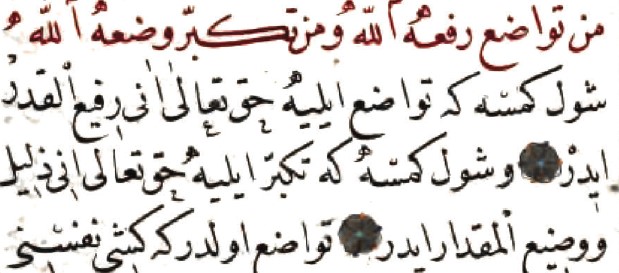 من تواضع رفعه الله ومن تكبّر وضعه الله
شول كمسه كه تواضع ايليه حق تعالى انى رفيع القدر
ايدر وشول كمسه كه تكبّر ايليه حق تعالى انى ذليل
ووضيع المقدار ايدر تواضع اولدر كه كشى نفسنى